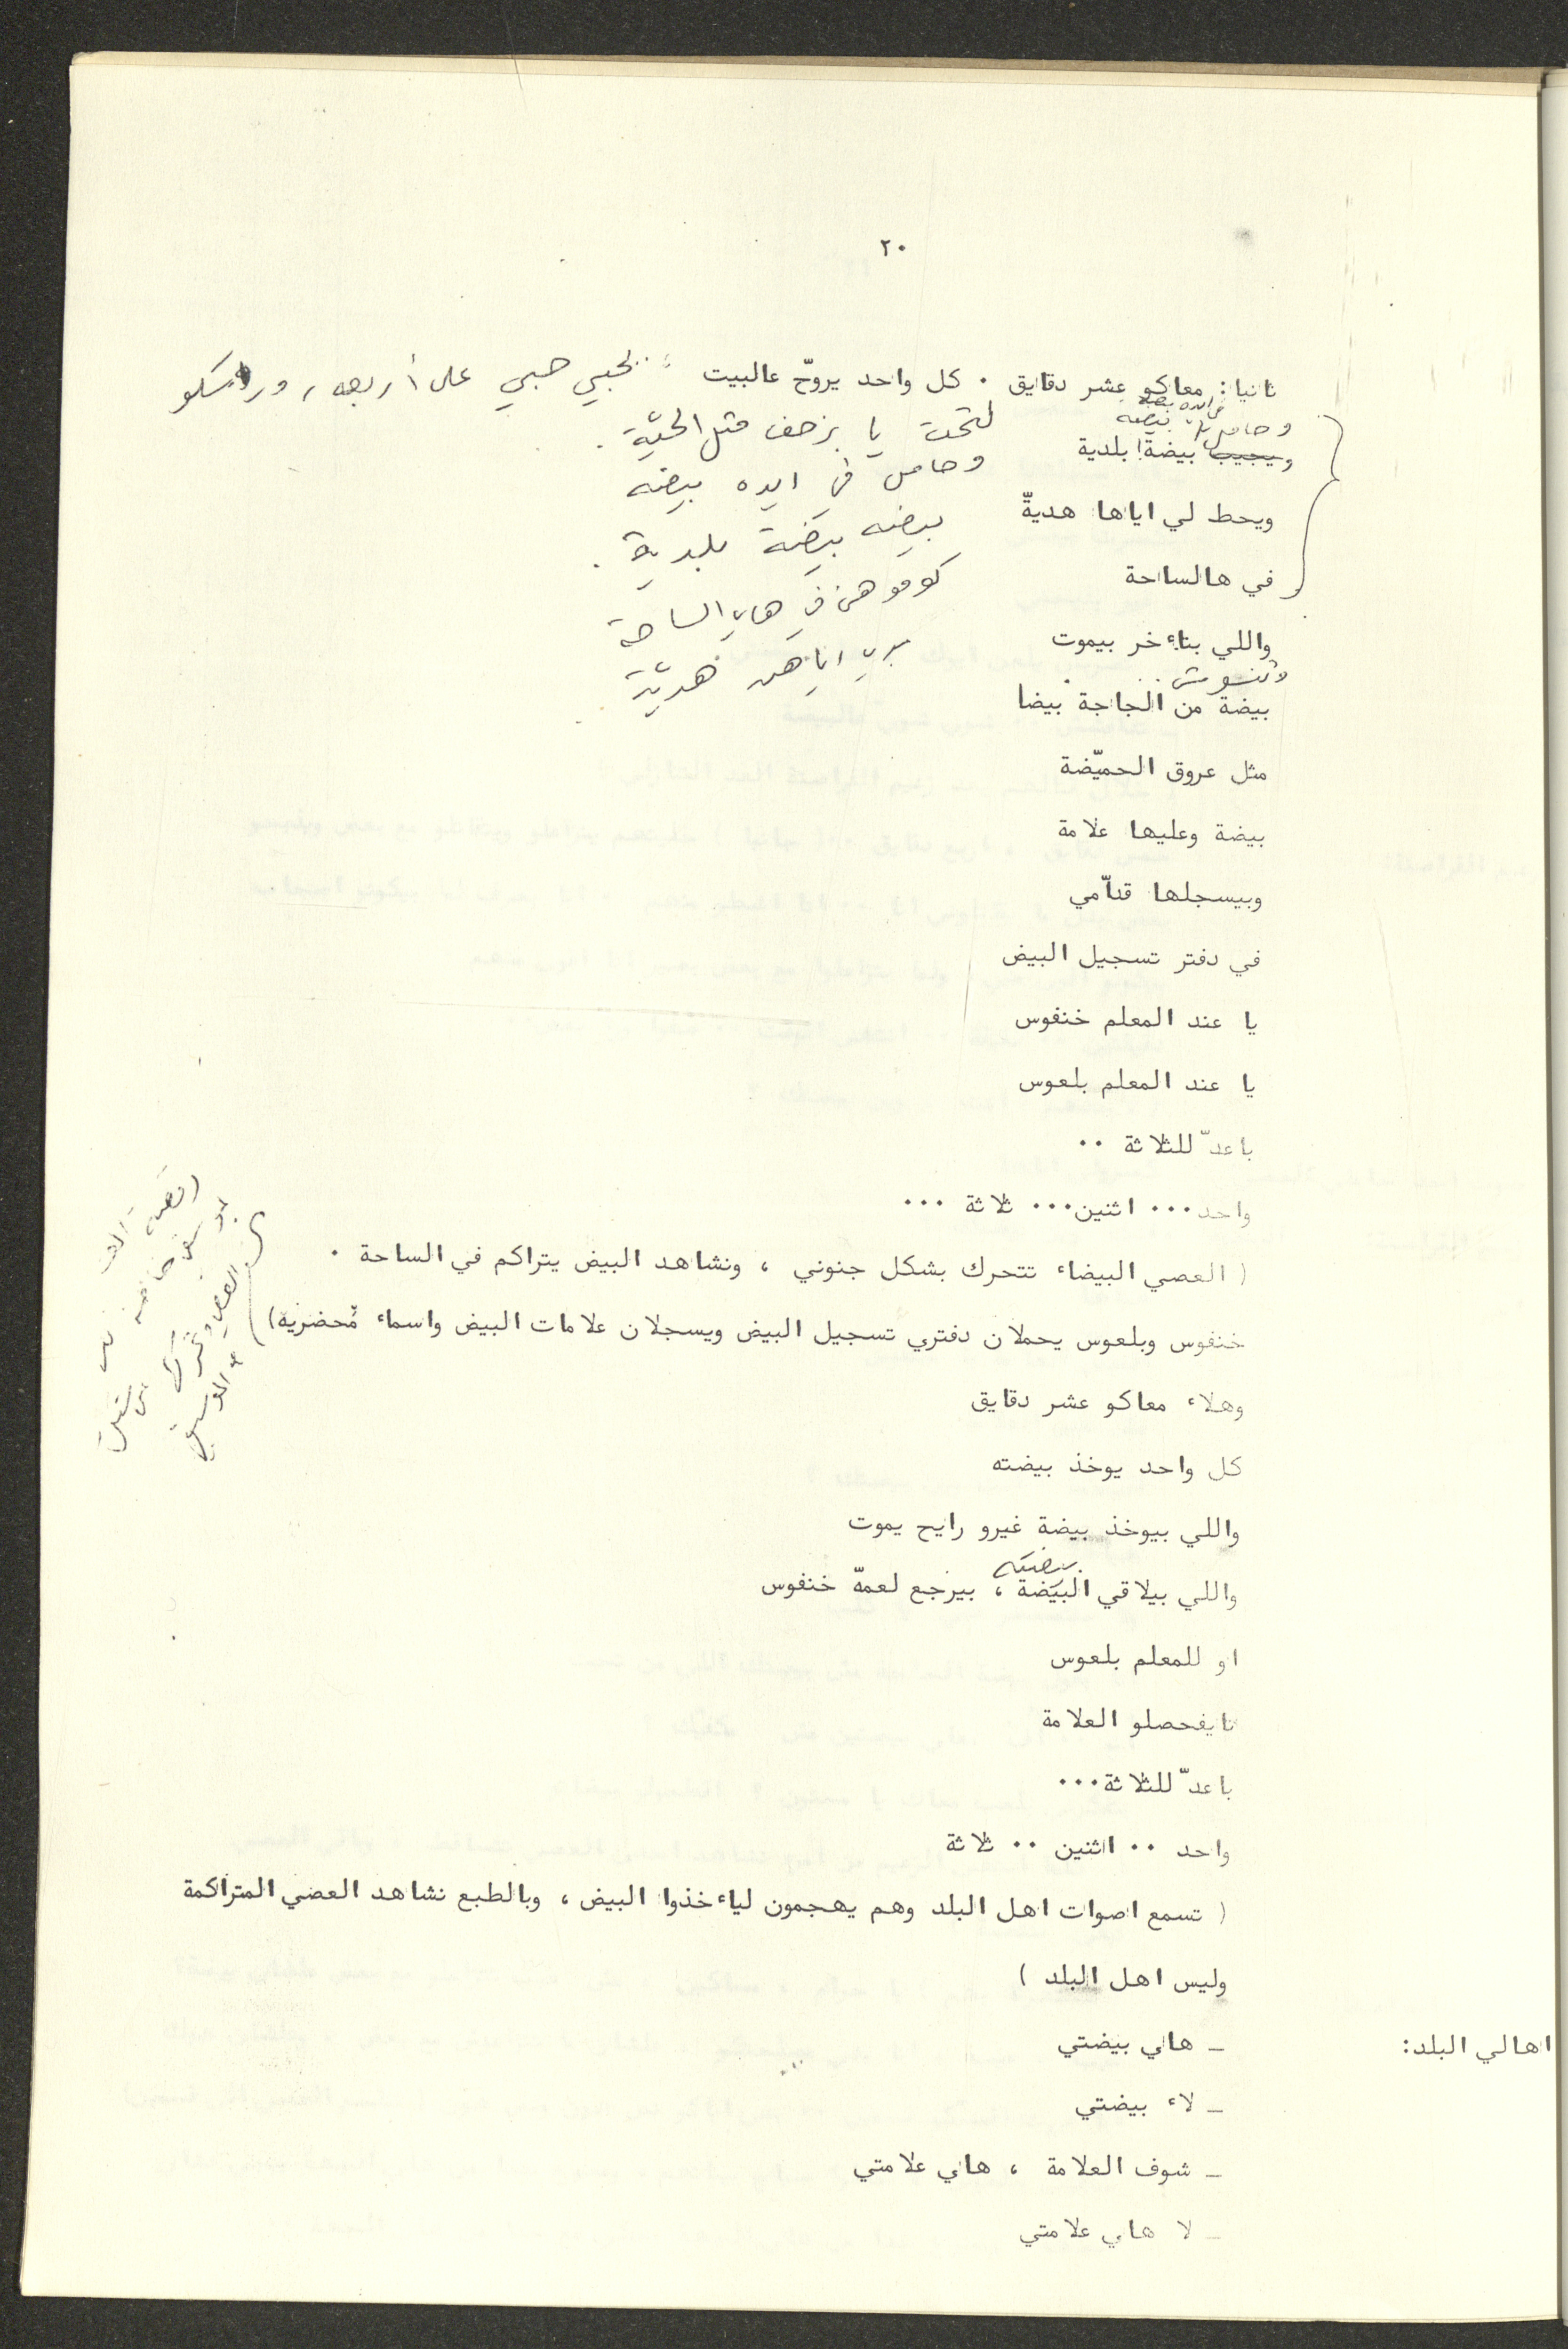 ٢٠
ثانيا: معاكو عشر دقايق . كل واحد يروّح عالبيت : يحبي حبي على أربعه، وراسكو
لتحت يا بزحف متل الحيّة .
وحامل في ايده بيضه
ويجيب بيضة! بلدية
وحامل في ايده بيضه
ويحط لي اياها هديةّ
بيضه بيضة بلدية .
في هالساحة
كوموهن في هاي الساحة
واللي بتاءخر بيموت
اياهن هديّة
بيضة من الجاجة بيضا
مثل عروق الحميّضة
بيضة وعليها علامة
وبيسجلها قداّمي
في دفتر تسجيل البيض
يا عند المعلم خنفوس
يا عند المعلم بلعوس
باعدّ للثلاثة ..
واحد... اثنين... ثلاثة ...
( العصي البيضاء تتحرك بشكل جنوني ، ونشاهد البيض يتراكم في الساحة .
خنفوس وبلعوس يحملان دفتري تسجيل البيض ويسجلان علامات البيض واسماء مُحضريه)
وهلاء معاكو عشر دقايق
كل واحد يوخذ بيضته
واللي بيوخذ بيضة غيرو رايح يموت
بيضته
واللي بيلاقي البيضة ، بيرجع لعمهّ خنفوس
او للمعلم بلعوس
تايفحصلو العلامة
باعدّ للثلاثة...
واحد .. اثنين .. ثلاثة
( تسمع اصوات اهل البلد وهم يهجمون لياءخذوا البيض ، وبالطبع نشاهد العصي المتراكمة
وليس اهل البلد )
اهالي البلد: _ هاي بيضتي
_ لاء بيضتي
_ شوف العلامة ، هاي علامتي
_ لا هاي علامتي